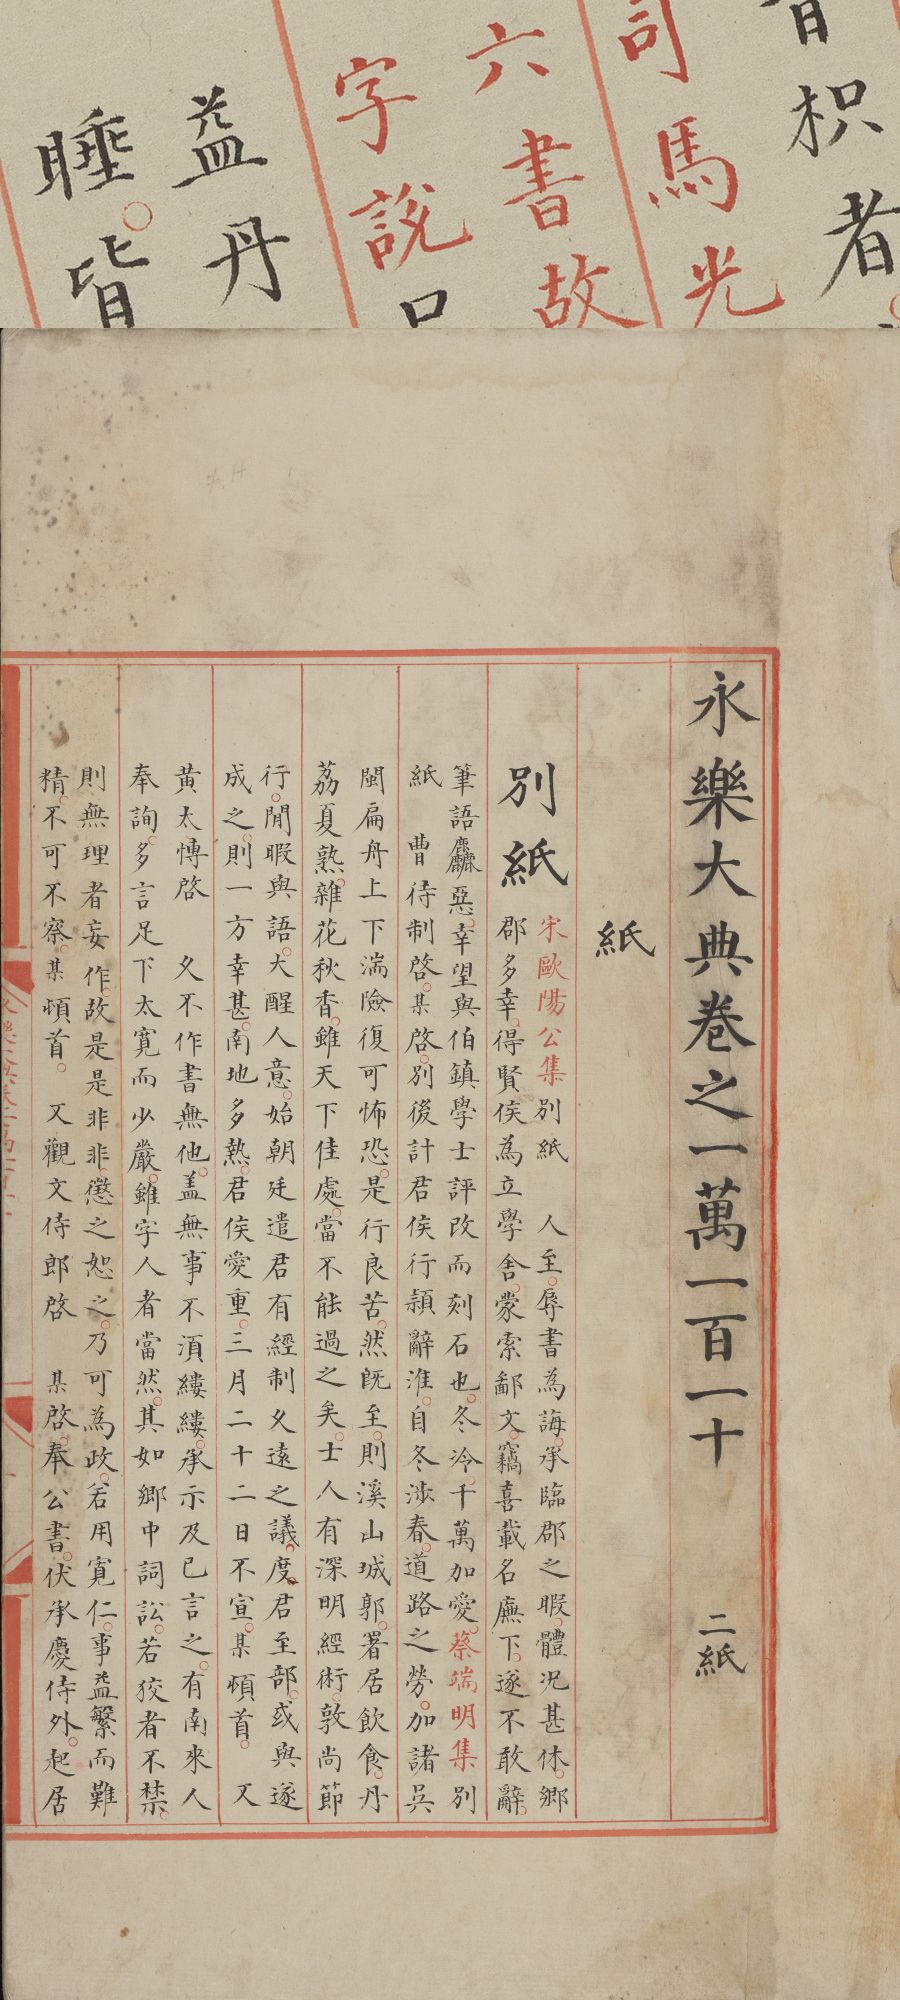 皆枳者
司馬光
六書故
字說口
益丹
睡皆
永樂大典卷之一萬一百一十 二紙
紙
別紙
宋歐陽公集別紙 人至辱書為誨承臨郡之暇體况甚休鄉
郡多幸得賢侯為立學舍蒙索鄙文竊喜載名廡下遂不敢辭
筆語麤惡幸望與伯鎮學士評改而刻石也冬冷千萬加愛蔡端明集別
紙 曹待制啓某啓別後計君侯行潁辭淮自冬涉春道路之勞加諸吳
閩扁舟上下湍險復可怖恐是行良苦然既至則溪山城郭署居飲食丹
荔夏熟雜花秋香雖天下佳處當不能過之矣士人有深明經術敦尚節
行閒暇與語大醒人意始朝廷遣君有經制久遠之議度君至部或與遂
成之則一方幸甚南地多熱君侯愛重三月二十二日不宣某頓首 又
黄太慱啓 久不作書無他盖無事不湏縷縷承示及已言之有南來人
奉詢多言足下太寛而少嚴雖字人者當然其如鄉中詞訟若狡者不禁
則無理者妄作故是是非非懲之恕之乃可為政若用寛仁事益繁而難
精不可不察某頓首 又觀文侍郎啓 某啓奉公書伏承慶侍外起居